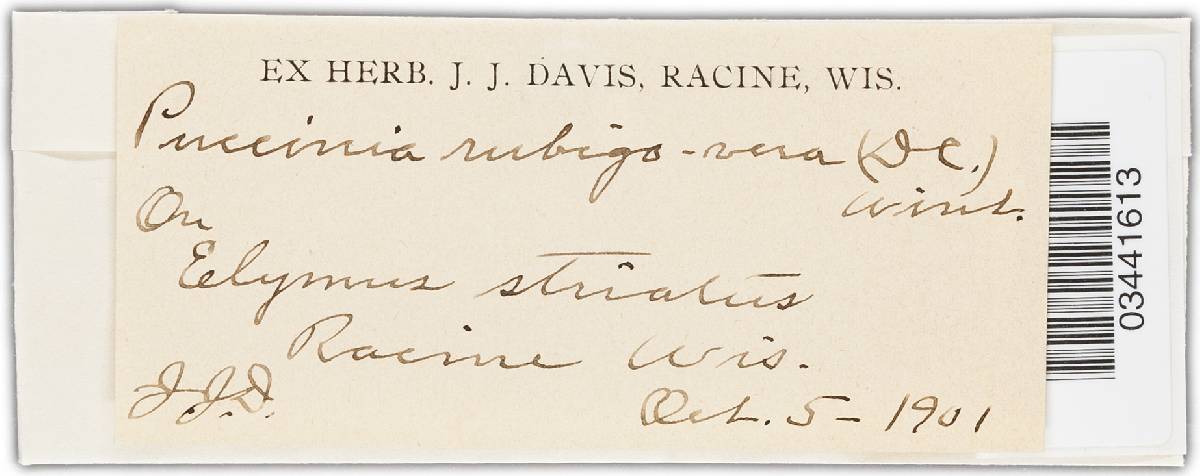 EX HERB. J. J. DAVIS, RACINE, WIS.
Puccinia rubigo-vera (DC.)
Wint.
On
Elymus striatus
Racine Wis.
J.J.D.
Oct. 5 - 1901
03441613